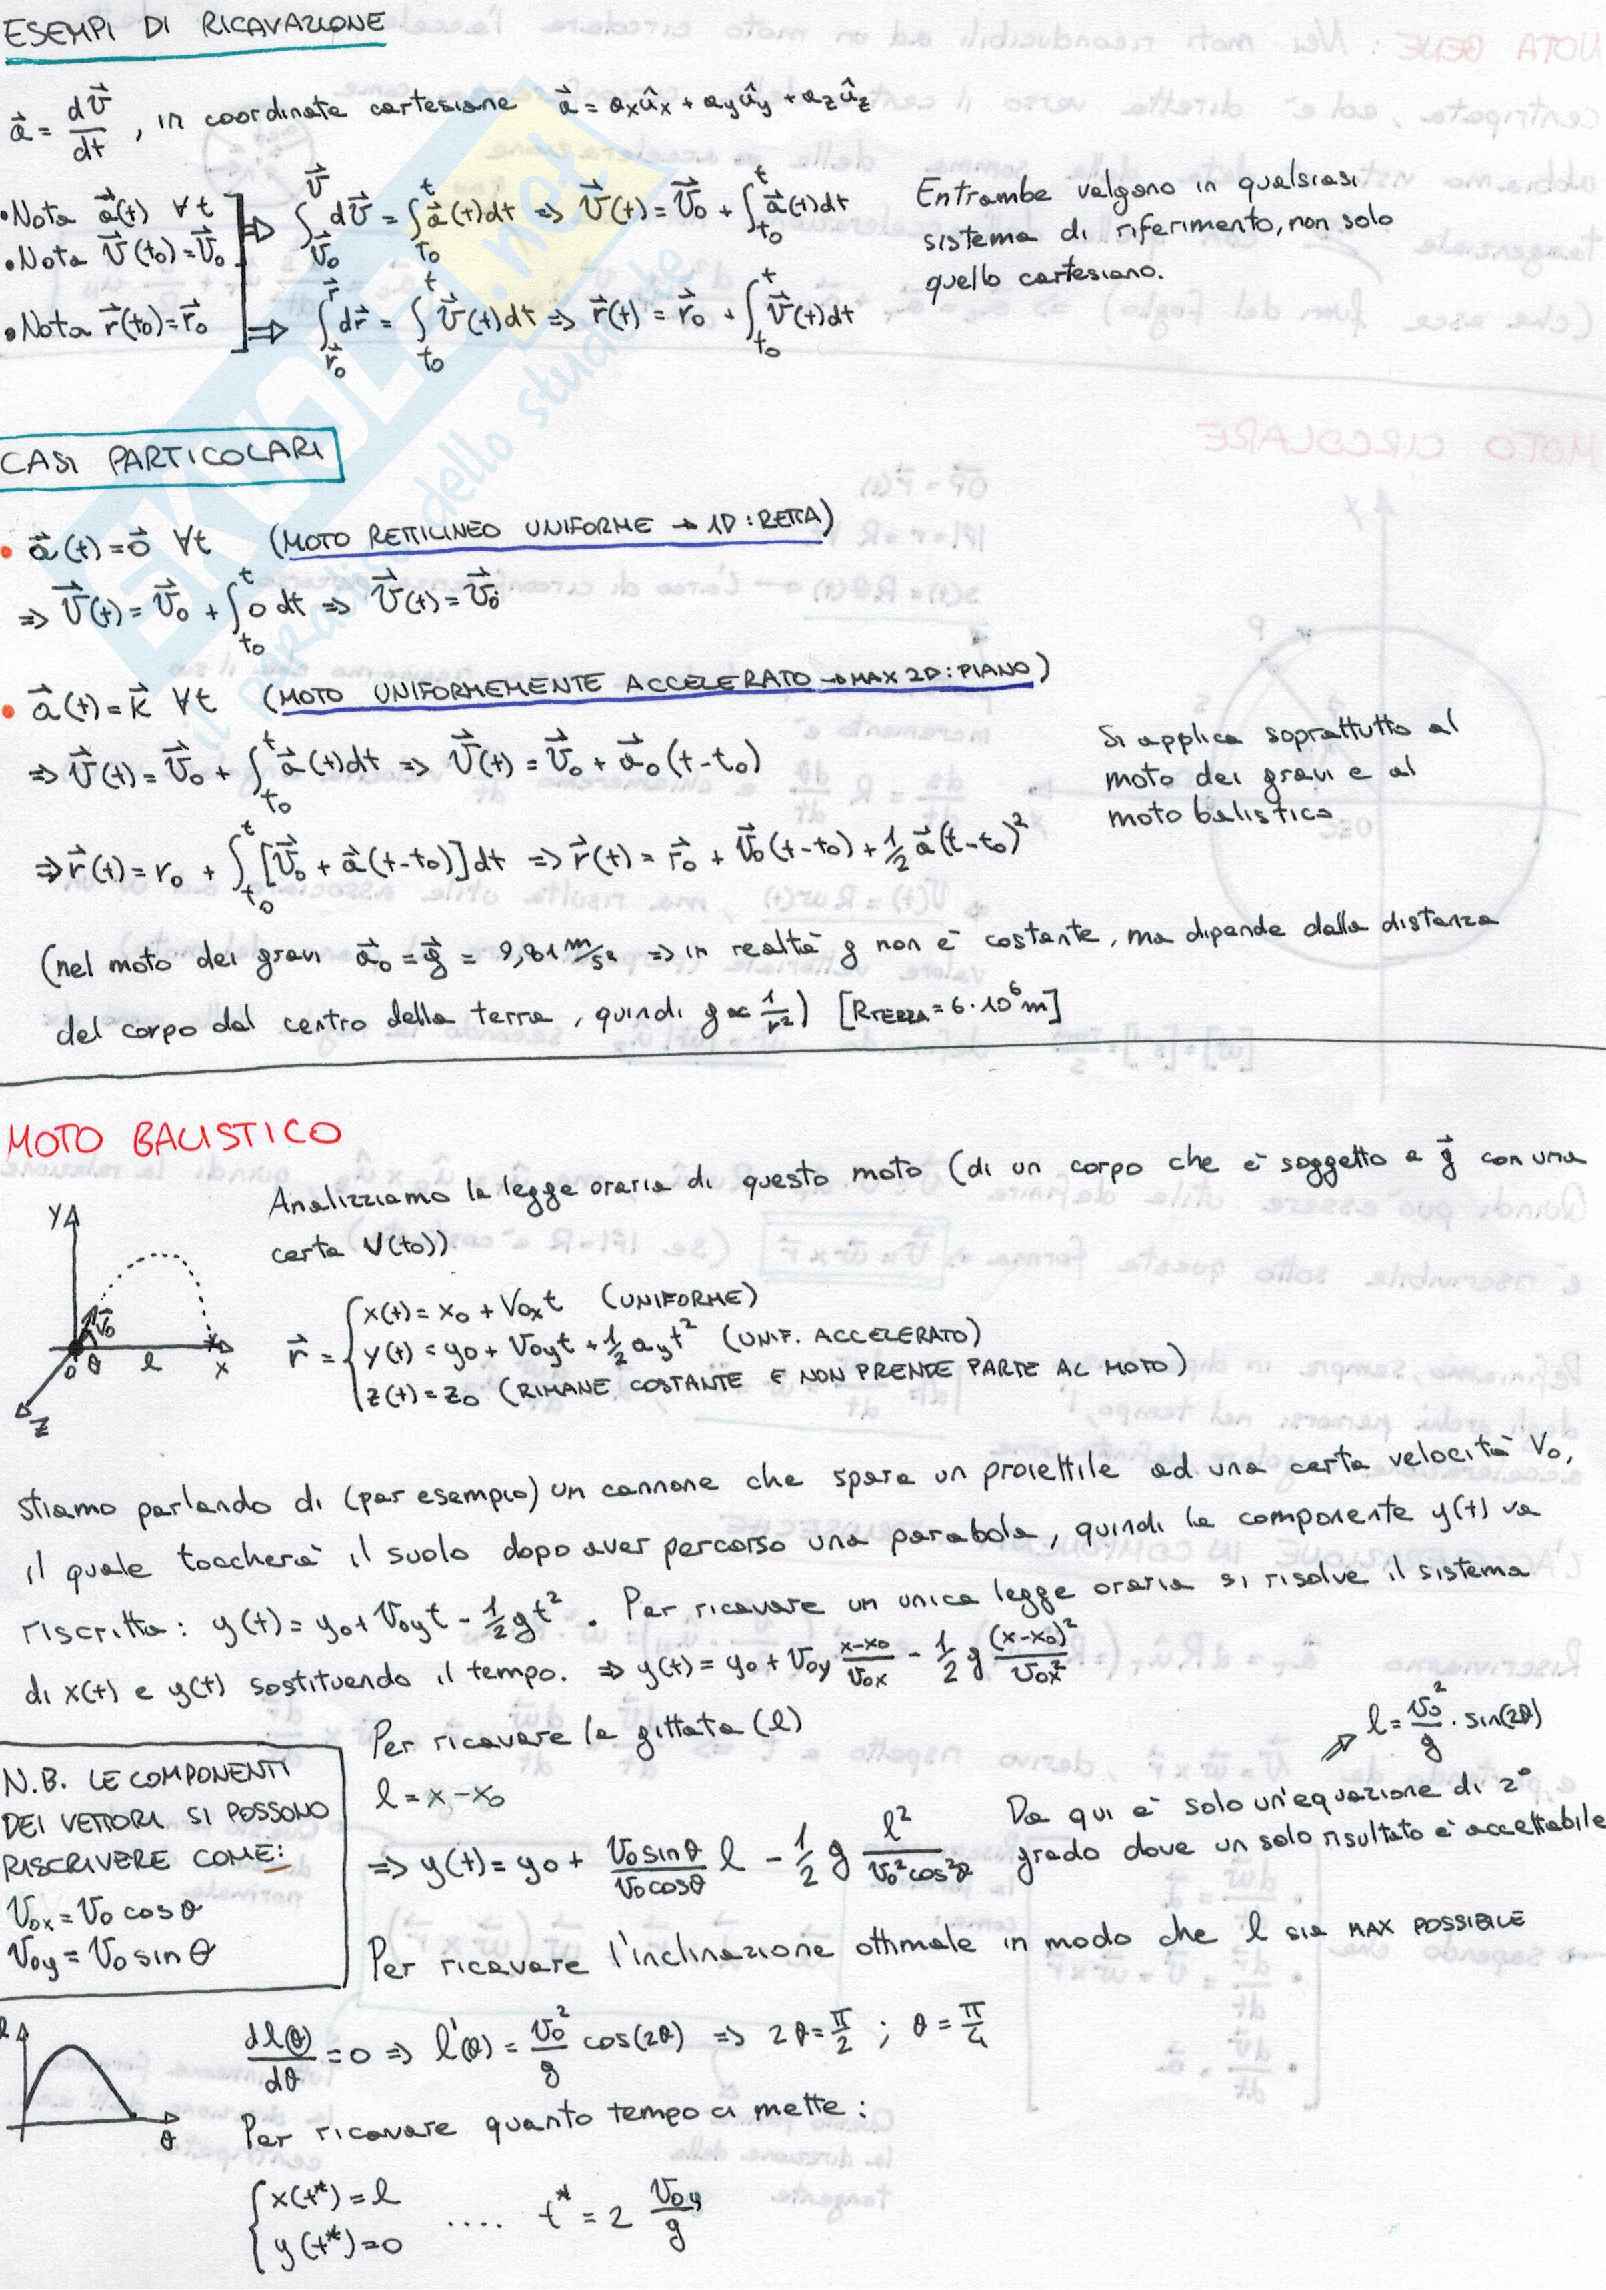 ESEMPI DI RICAVAZIONE
a⃗ = dv⃗/dt , in coordinate cartesiane a⃗ = aₓûₓ + a_yû_y + a_zû_z
•Nota a⃗(t) ∀t
•Nota v⃗(t₀)=v⃗₀ ⇒ ∫_{v⃗₀}^{v⃗} dv⃗ = ∫_{t₀}^{t} a⃗(t)dt ⇒ v⃗(t) = v⃗₀ + ∫_{t₀}^{t} a⃗(t)dt
•Nota r⃗(t₀)=r⃗₀ ⇒ ∫_{r⃗₀}^{r⃗} dr⃗ = ∫_{t₀}^{t} v⃗(t)dt ⇒ r⃗(t) = r⃗₀ + ∫_{t₀}^{t} v⃗(t)dt
Entrambe valgono in qualsiasi
sistema di riferimento, non solo
quello cartesiano.
CASI PARTICOLARI
• a⃗(t)=0⃗ ∀t (MOTO RETTILINEO UNIFORME → 1D: RETTA)
⇒ v⃗(t) = v⃗₀ + ∫_{t₀}^{t} 0 dt ⇒ v⃗(t) = v⃗₀
• a⃗(t)=k⃗ ∀t (MOTO UNIFORMEMENTE ACCELERATO → MAX 2D: PIANO)
⇒ v⃗(t) = v⃗₀ + ∫_{t₀}^{t} a⃗(t)dt ⇒ v⃗(t) = v⃗₀ + a⃗₀(t-t₀)
⇒ r⃗(t) = r₀ + ∫_{t₀}^{t} [v⃗₀ + a⃗(t-t₀)]dt ⇒ r⃗(t) = r⃗₀ + v⃗₀(t-t₀) + 1/2 a⃗(t-t₀)²
Si applica soprattutto al
moto dei gravi e al
moto balistico
(nel moto dei gravi a⃗₀ = g⃗ = 9,81 m/s² ⇒ in realtà g non è costante, ma dipende dalla distanza
del corpo dal centro della terra, quindi g ∝ 1/r²) [R_TERRA = 6·10⁶m]
MOTO BALISTICO
Analizziamo la legge oraria di questo moto (di un corpo che è soggetto a g⃗ con una
certa V(t₀))
y
v⃗₀
0 θ l x
z
r⃗ = { x(t) = x₀ + V₀ₓt (UNIFORME)
y(t) = y₀ + V₀yt + 1/2 a_yt² (UNIF. ACCELERATO)
z(t) = z₀ (RIMANE COSTANTE E NON PRENDE PARTE AL MOTO)
stiamo parlando di (per esempio) un cannone che spara un proiettile ad una certa velocità V₀,
il quale toccherà il suolo dopo aver percorso una parabola, quindi la componente y(t) va
riscritta: y(t) = y₀ + V₀yt - 1/2 gt². Per ricavare un unica legge oraria si risolve il sistema
di x(t) e y(t) sostituendo il tempo. ⇒ y(t) = y₀ + V₀y (x-x₀)/V₀ₓ - 1/2 g (x-x₀)²/V₀ₓ²
N.B. LE COMPONENTI
DEI VETTORI SI POSSONO
RISCRIVERE COME:
V₀ₓ = V₀ cos θ
V₀y = V₀ sin θ
Per ricavare la gittata (l)
l = x - x₀
⇒ y(t) = y₀ + (V₀ sinθ)/(V₀ cosθ) l - 1/2 g l²/(V₀² cos²θ)
Da qui è solo un'equazione di 2°
grado dove un solo risultato è accettabile
⇒ l = V₀²/g · sin(2θ)
Per ricavare l'inclinazione ottimale in modo che l sia MAX POSSIBILE
l
θ
dl(θ)/dθ = 0 ⇒ l'(θ) = V₀²/g cos(2θ) ⇒ 2θ = π/2 ; θ = π/4
Per ricavare quanto tempo ci mette:
{ x(t*) = l
y(t*) = 0 .... t* = 2 V₀y/g